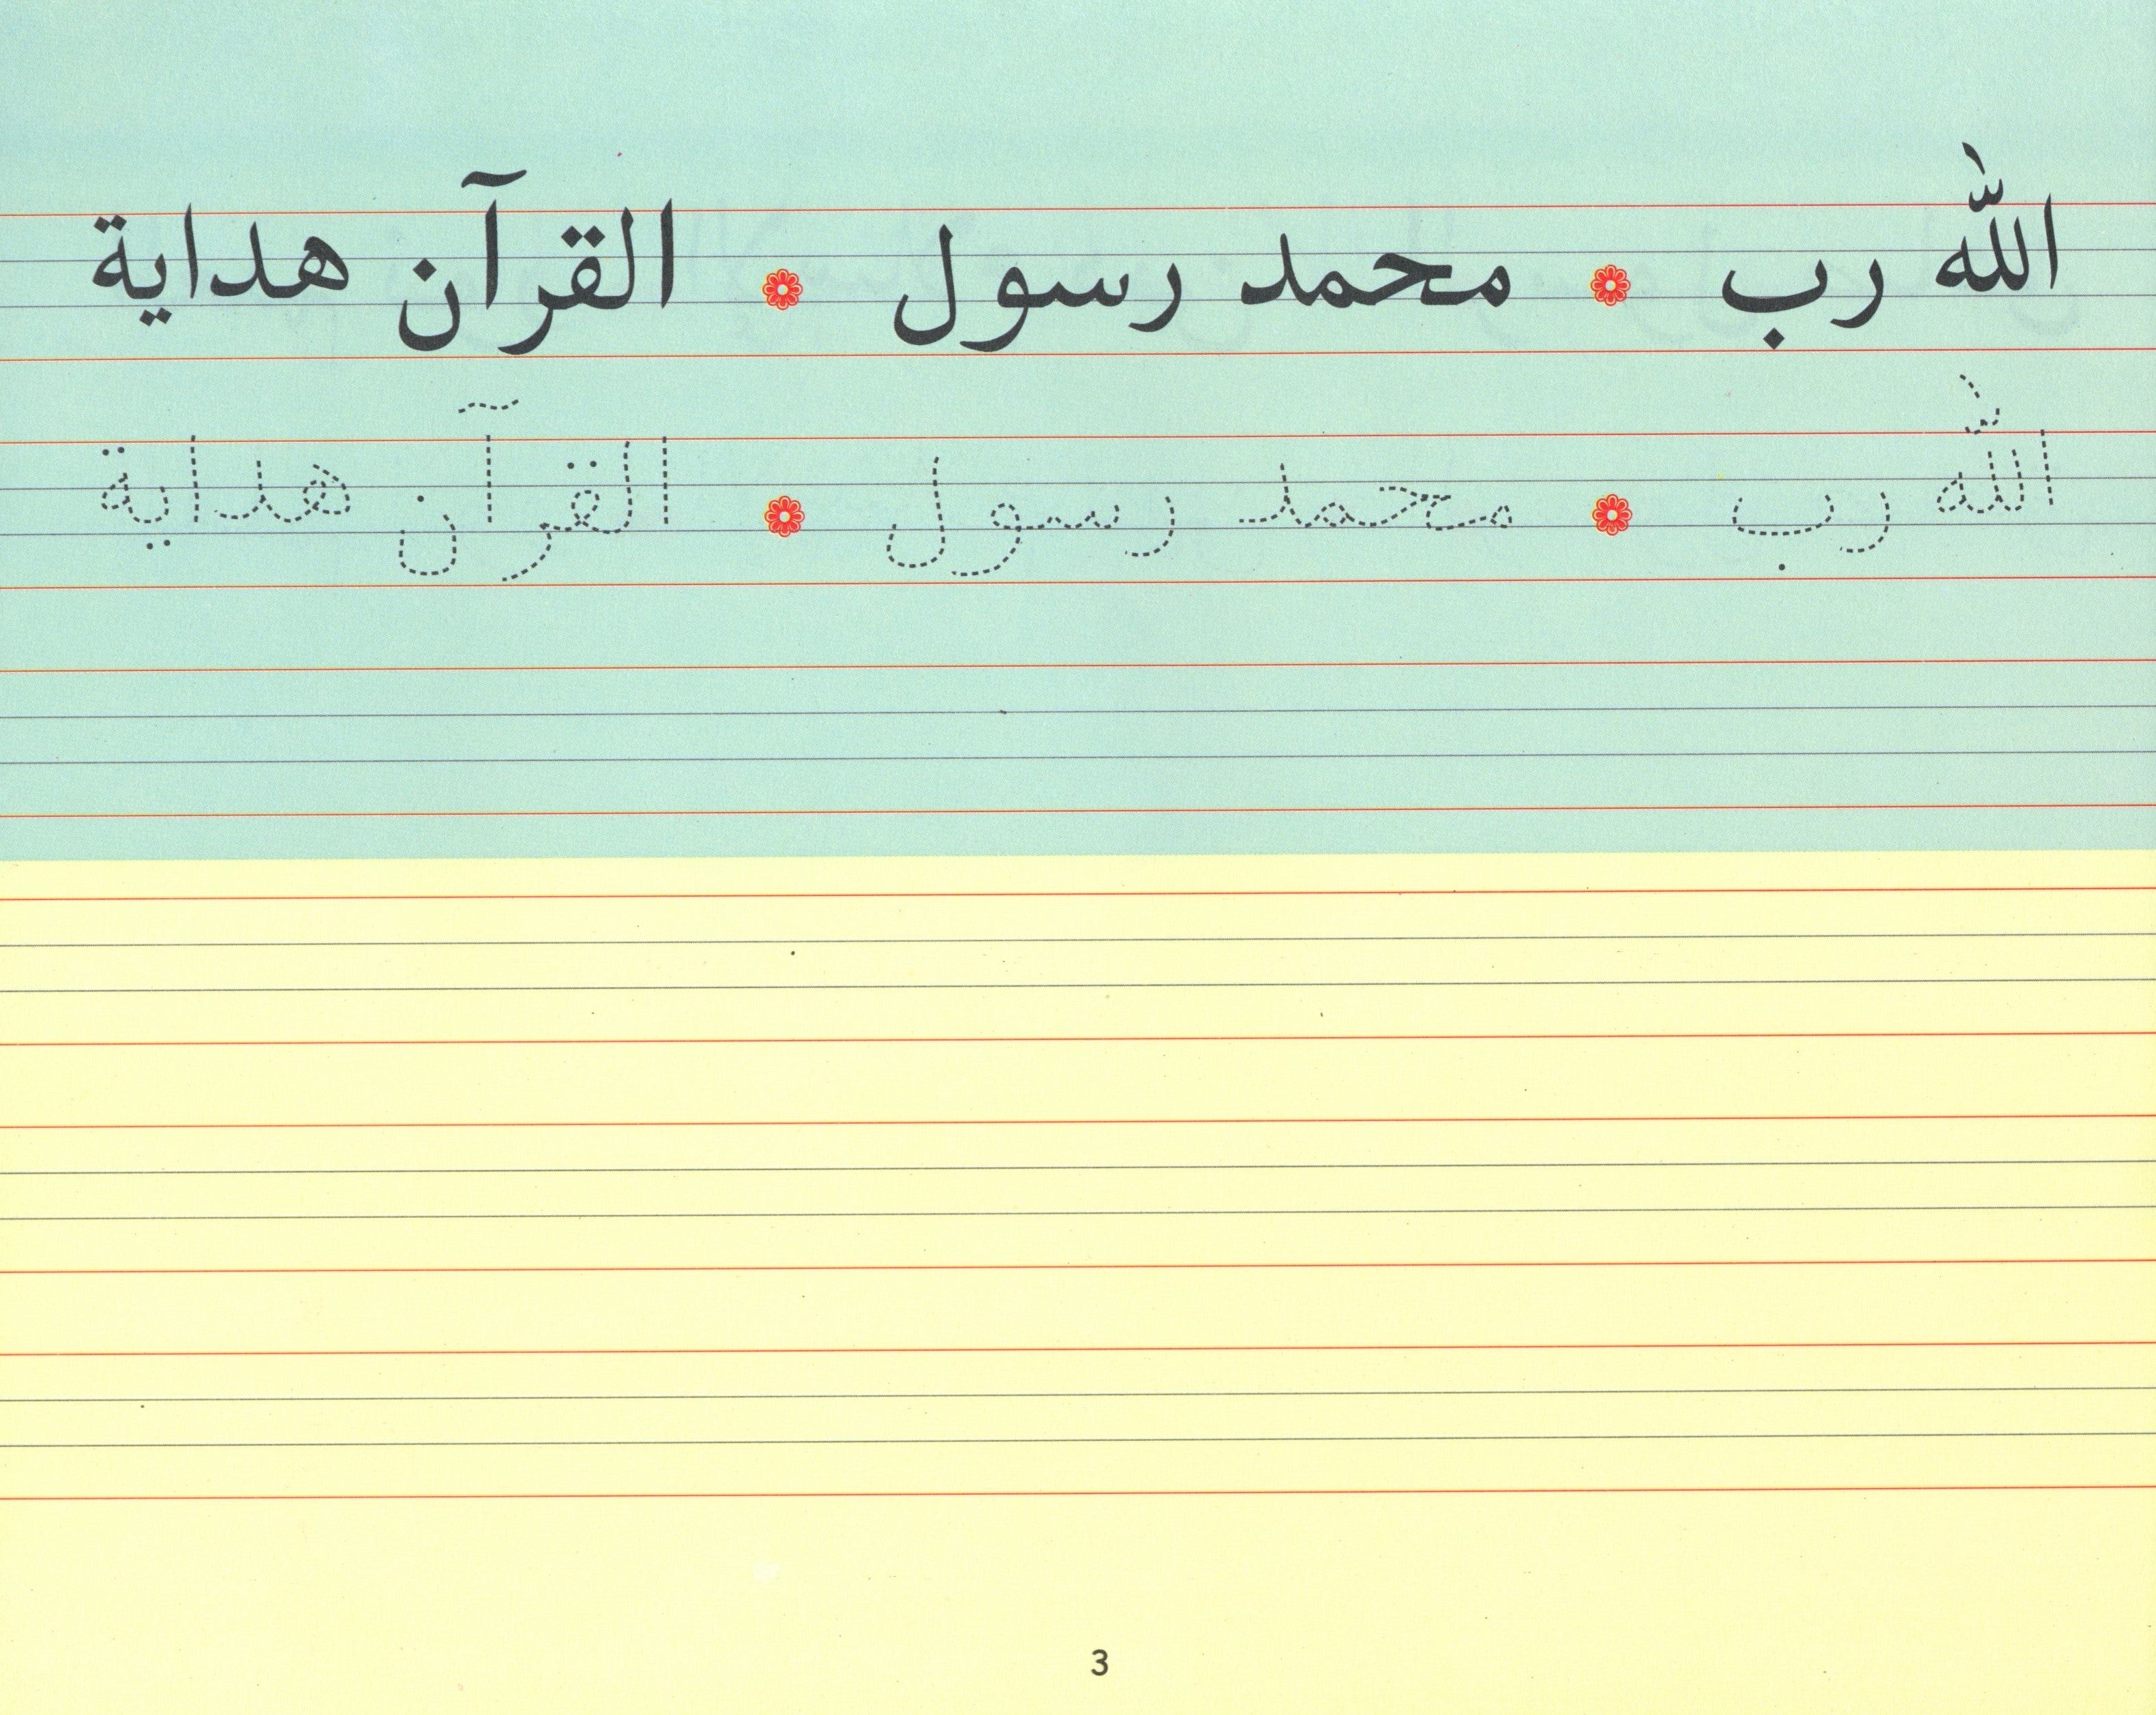 اللّٰه رب محمد رسول القرآن هداية
اللّٰه رب محمد رسول القرآن هداية
3